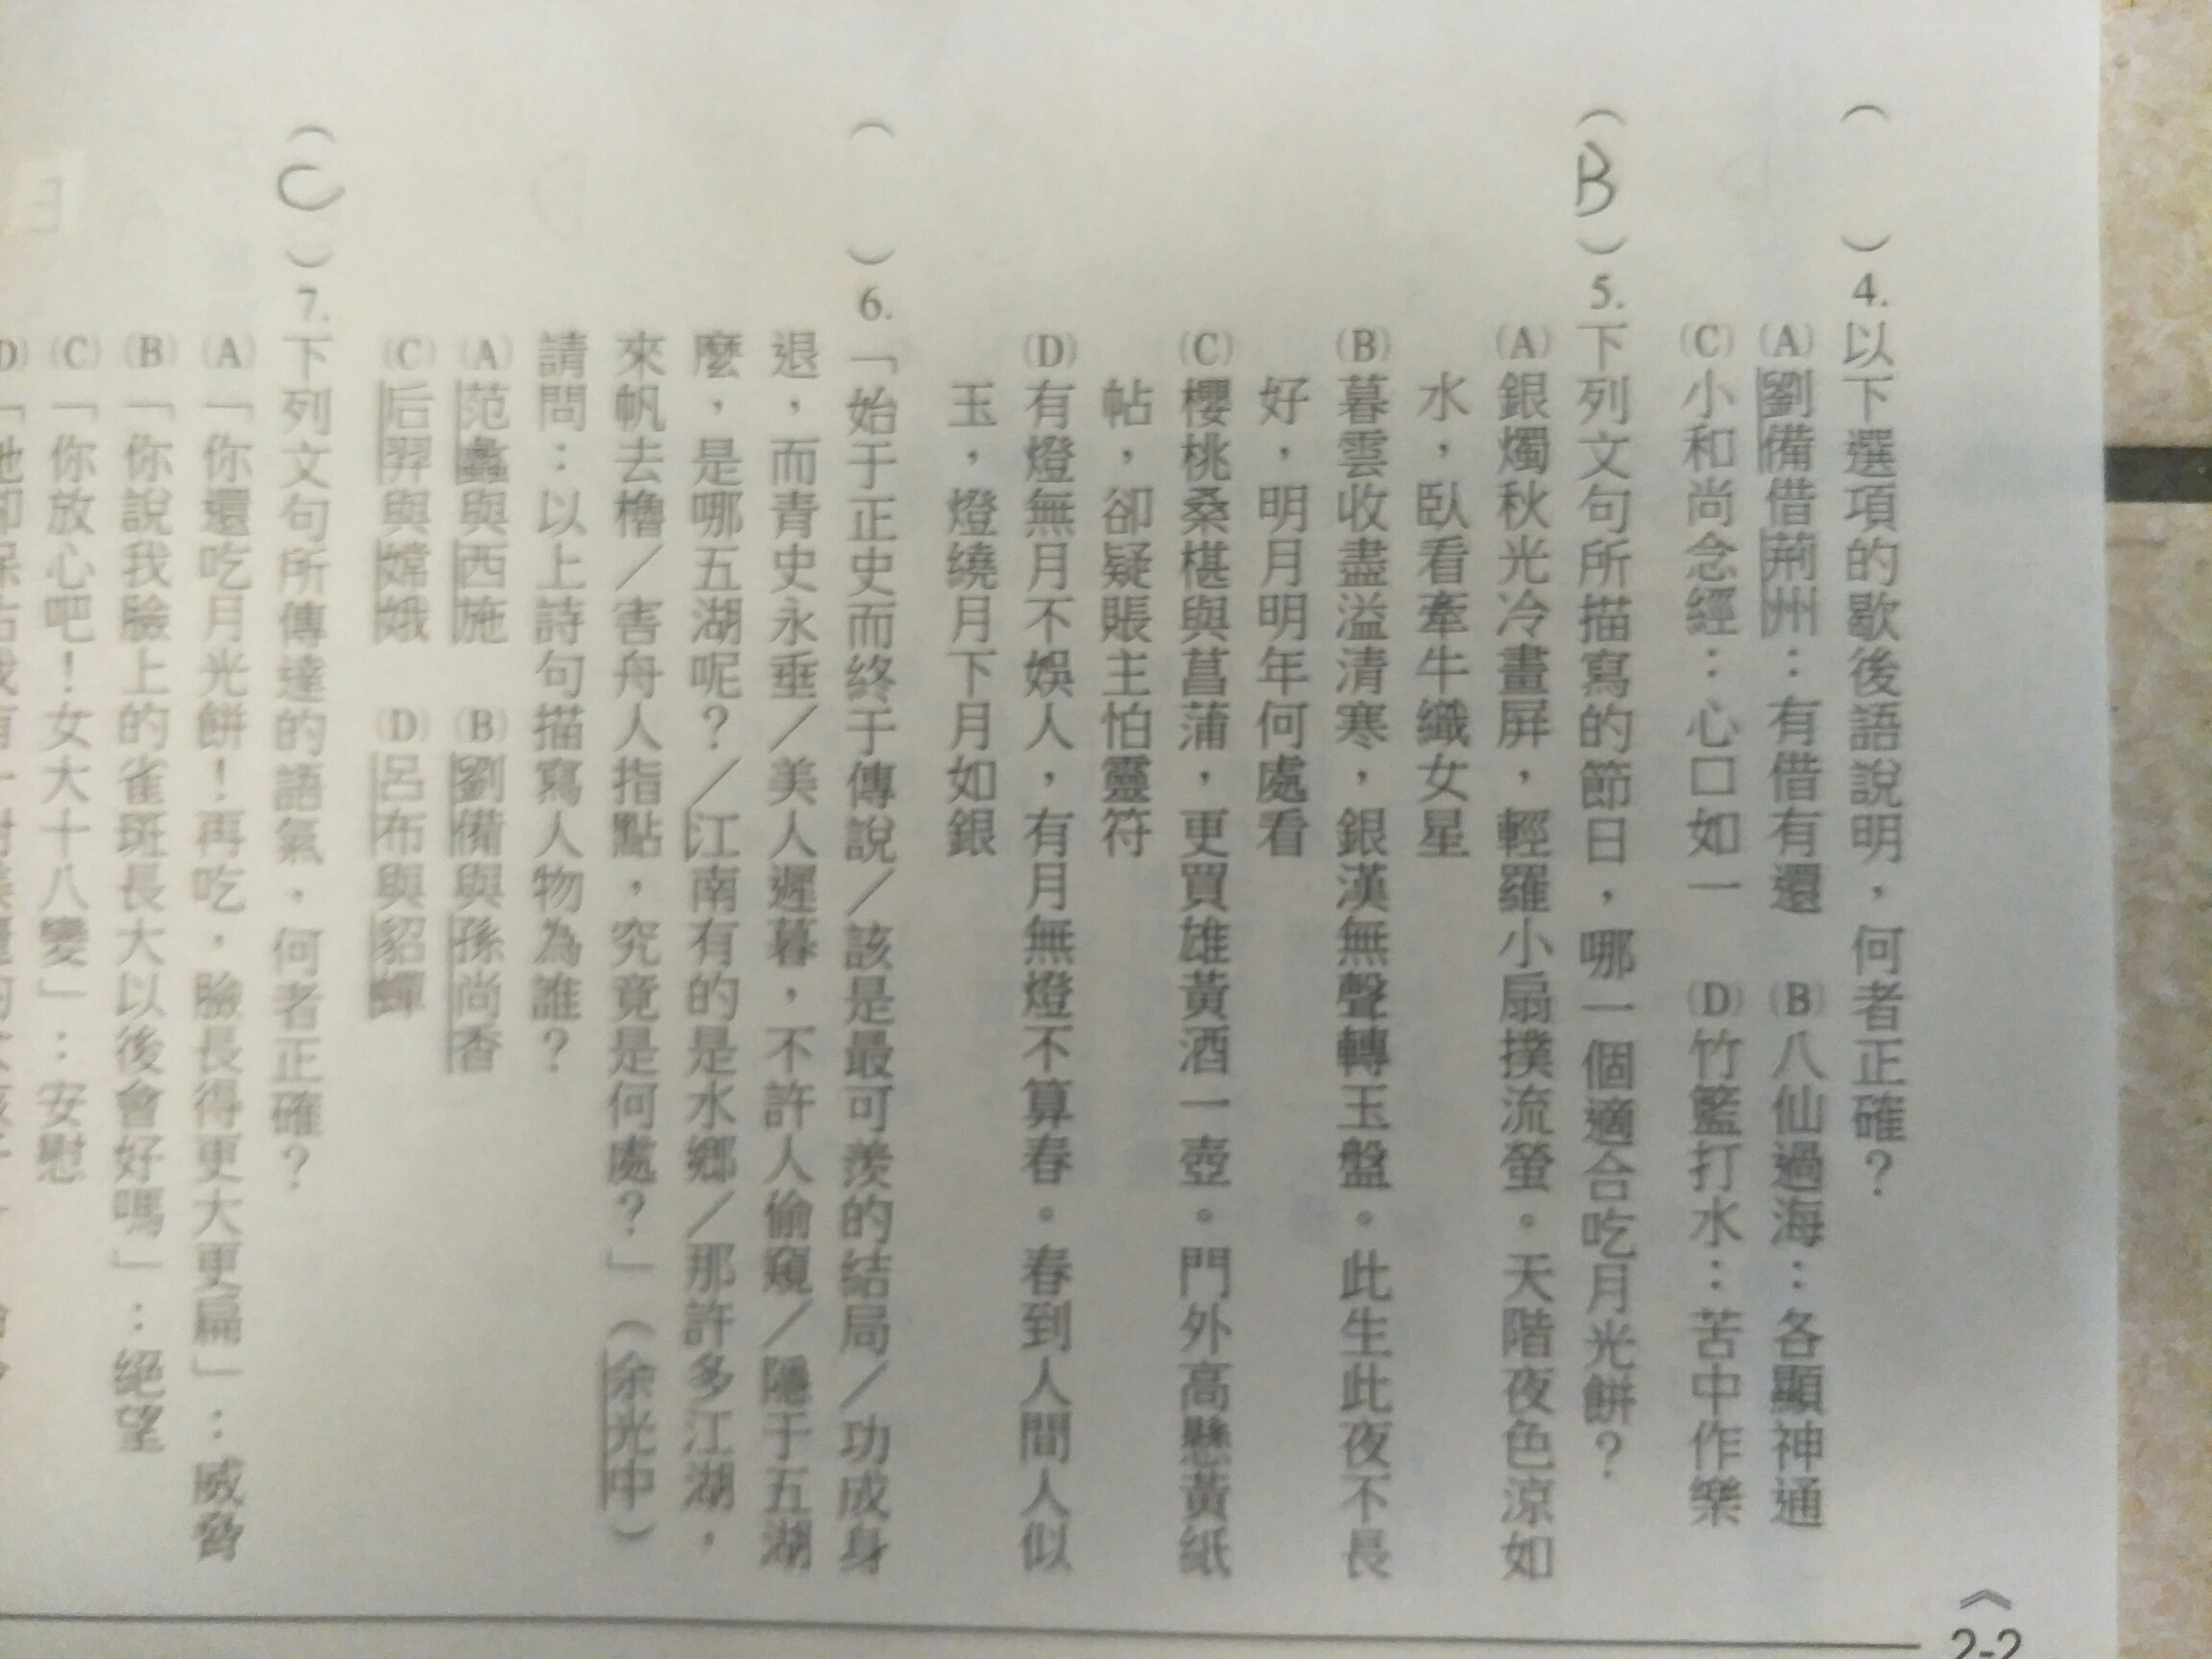 ( )4.以下選項的歇後語說明，何者正確？
(A)劉備借荊州：有借有還 (B)八仙過海：各顯神通
(C)小和尚念經：心口如一 (D)竹籃打水：苦中作樂
(B)5.下列文句所描寫的節日，哪一個適合吃月光餅？
(A)銀燭秋光冷畫屏，輕羅小扇撲流螢。天階夜色涼如
水，臥看牽牛織女星
(B)暮雲收盡溢清寒，銀漢無聲轉玉盤。此生此夜不長
好，明月明年何處看
(C)櫻桃桑椹與菖蒲，更買雄黃酒一壺。門外高懸黃紙
帖，卻疑賬主怕靈符
(D)有燈無月不娛人，有月無燈不算春。春到人間人似
玉，燈繞月下月如銀
( )6.「始于正史而終于傳說／該是最可羨的結局／功成身
退，而青史永垂／美人遲暮，不許人偷窺／隱于五湖
麼，是哪五湖呢？／江南有的是水鄉／那許多江湖，
來帆去櫓／害舟人指點，究竟是何處？」（余光中）
請問：以上詩句描寫人物為誰？
(A)范蠡與西施 (B)劉備與孫尚香
(C)后羿與嫦娥 (D)呂布與貂蟬
(C)7.下列文句所傳達的語氣，何者正確？
(A)「你還吃月光餅！再吃，臉長得更大更扁」：威脅
(B)「你說我臉上的雀斑長大以後會好嗎」：絕望
(C)「你放心吧！女大十八變」：安慰
《2-2